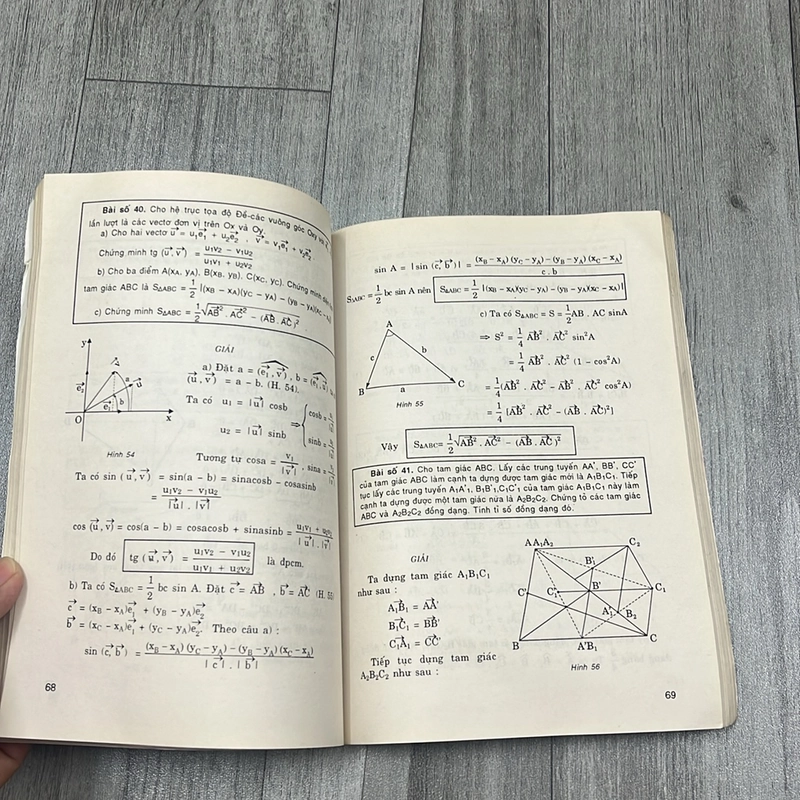 Bài số 40. Cho hệ trục tọa độ Đề-các vuông góc Oxy và
lần lượt là các vectơ đơn vị trên Ox và Oy.
a) Cho hai vectơ u⃗ = u₁e₁⃗ + u₂e₂⃗ , v⃗ = v₁e₁⃗ + v₂e₂⃗.
Chứng minh tg (u⃗, v⃗) = (u₁v₂ − v₁u₂)/(u₁v₁ + u₂v₂)
b) Cho ba điểm A(xA, yA), B(xB, yB), C(xC, yC). Chứng minh
tam giác ABC là SΔABC = 1/2 |(xB − xA)(yC − yA) − (yB − yA)(xC − xA)|
c) Chứng minh SΔABC = 1/2 √(AB⃗² . AC⃗² − (AB⃗ . AC⃗)²)
GIẢI
y
A
e₂⃗
u⃗
a
b
O
e₁⃗
x
Hình 54
a) Đặt a = (e₁⃗, v⃗), b = (e₁⃗,
(u⃗, v⃗) = a − b. (H. 54).
Ta có u₁ = |u⃗| cosb
u₂ = |u⃗| sinb
⇒ { cosb =
sinb =
Tương tự cosa = v₁/|v⃗| , sina =
Ta có sin (u⃗, v⃗) = sin(a − b) = sinacosb − cosasinb
= (u₁v₂ − v₁u₂)/(|u⃗| . |v⃗|)
cos (u⃗, v⃗) = cos(a − b) = cosacosb + sinasinb = (u₁v₁ + u₂v₂)/(|u⃗| . |v⃗|)
Do đó tg (u⃗, v⃗) = (u₁v₂ − v₁u₂)/(u₁v₁ + u₂v₂) là đpcm.
b) Ta có SΔABC = 1/2 bc sin A. Đặt c⃗ = AB⃗ , b⃗ = AC⃗ (H. 55)
c⃗ = (xB − xA)e₁⃗ + (yB − yA)e₂⃗
b⃗ = (xC − xA)e₁⃗ + (yC − yA)e₂⃗. Theo câu a) :
sin (c⃗, b⃗) = ((xB − xA) (yC − yA) − (yB − yA) (xC − xA))/(|c⃗| . |b⃗|)
68
sin A = |sin (c⃗, b⃗)| = ((xB − xA) (yC − yA) − (yB − yA) (xC − xA))/(c . b)
SΔABC = 1/2 bc sin A nên SΔABC = 1/2 |(xB − xA)(yC − yA) − (yB − yA)(xC − xA)|
A
c
b
B
a
C
Hình 55
c) Ta có SΔABC = S = 1/2 AB . AC sinA
⇒ S² = 1/4 AB⃗² . AC⃗² sin²A
= 1/4 AB⃗² . AC⃗² (1 − cos²A)
= 1/4 (AB⃗² . AC⃗² − AB⃗² . AC⃗² cos²A)
= 1/4 [AB⃗² . AC⃗² − (AB⃗ . AC⃗)²]
Vậy SΔABC = 1/2 √(AB⃗² . AC⃗² − (AB⃗ . AC⃗)²)
Bài số 41. Cho tam giác ABC. Lấy các trung tuyến AA', BB', CC'
của tam giác ABC làm cạnh ta dựng được tam giác mới là A₁B₁C₁. Tiếp
tục lấy các trung tuyến A₁A'₁, B₁B'₁, C₁C'₁ của tam giác A₁B₁C₁ này làm
cạnh ta dựng được một tam giác nữa là A₂B₂C₂. Chứng tỏ các tam giác
ABC và A₂B₂C₂ đồng dạng. Tính tỉ số đồng dạng đó.
GIẢI
Ta dựng tam giác A₁B₁C₁
như sau :
A₁B₁⃗ = AA'⃗
B₁C₁⃗ = BB'⃗
C₁A₁⃗ = CC'⃗
Tiếp tục dựng tam giác
A₂B₂C₂ như sau :
AA₁A₂
C₂
B'₁
C'
C'₁
B'
C₁
A'₁
B₂
B
A'B₁
C
Hình 56
69